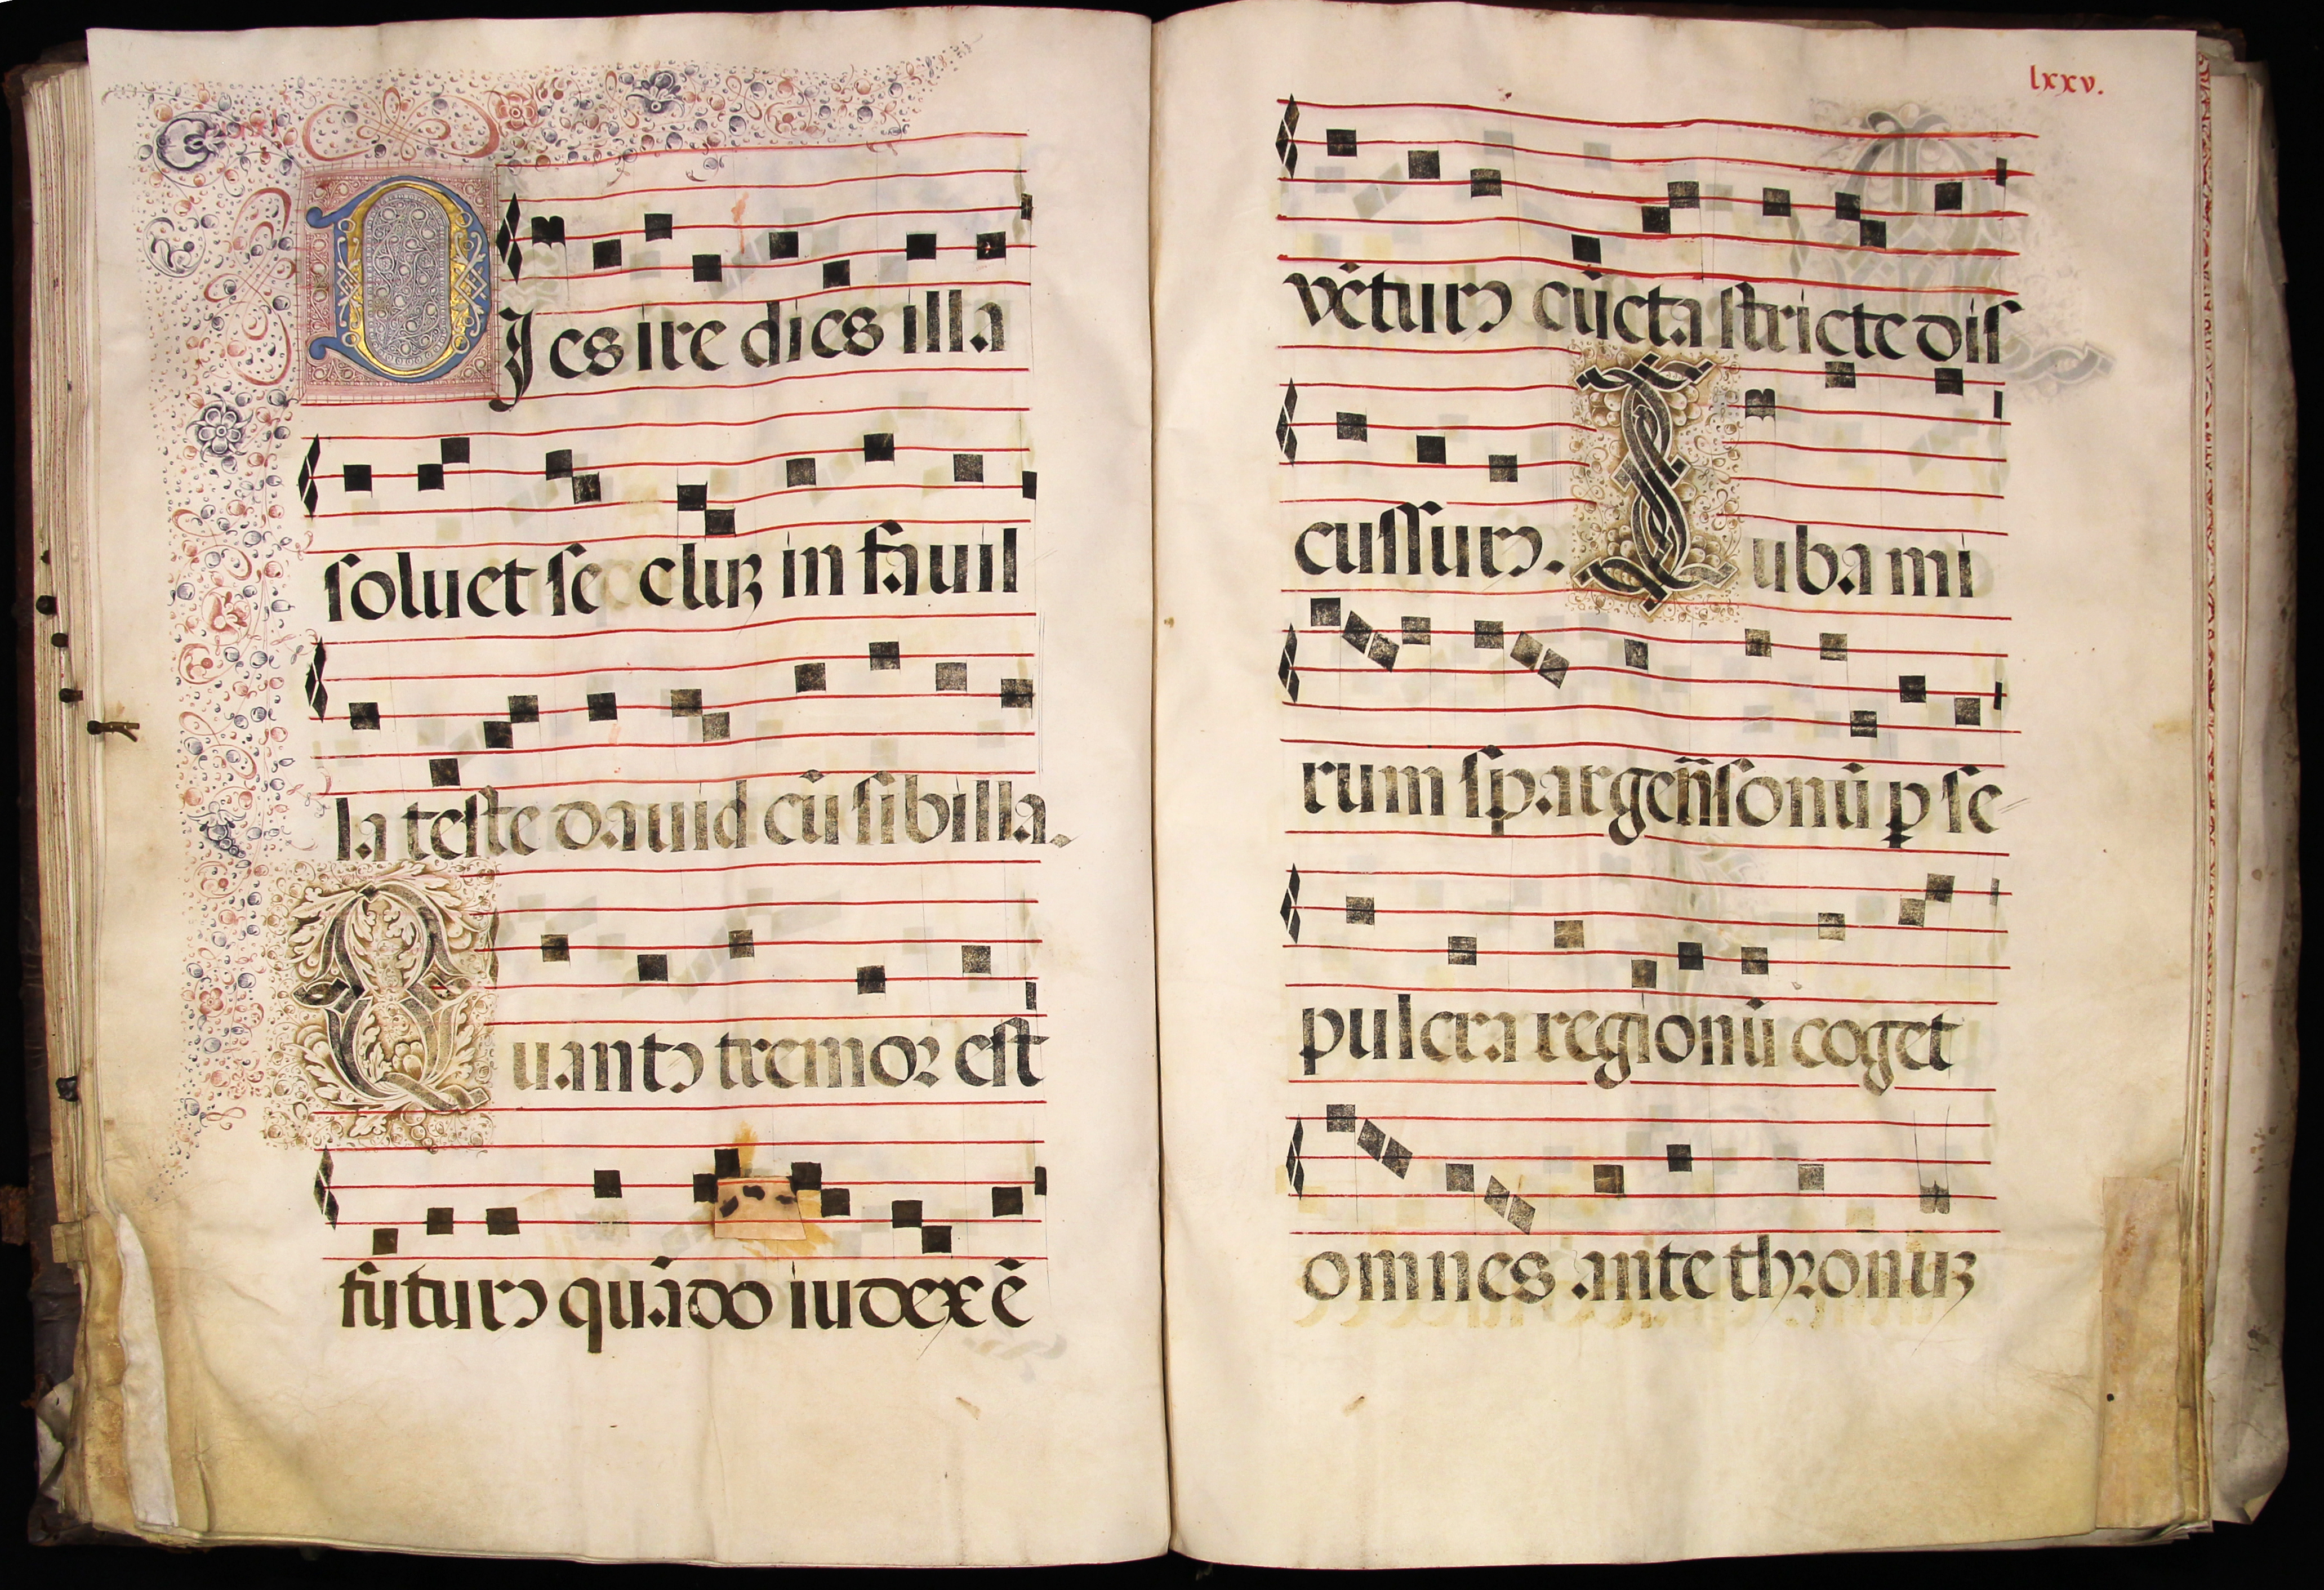 DJes ire dies illa
soluet se cluꝫ in fauil
la teste dauid cũ sibilla.
Quantꝯ tremor est
futurꝯ quãdo iudex ẽ
lxxv.
vẽturꝯ cũcta stricte dis
cussurꝯ. Tuba mi
rum spargeñs sonũ ꝑ se
pulcra regionũ coget
omnes ante thronuꝫ